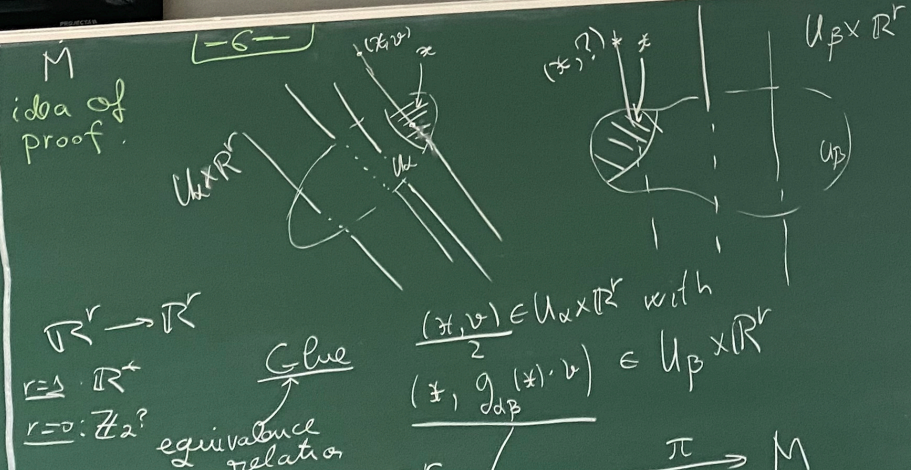 PROJECTA
-6-
M
idea of
proof.
(x,v)
x
U_α×ℝ^r
U_α
(x,?)
x
U_β×ℝ^r
U_β
ℝ^r→ℝ^r
r=1 ℝ^*
r=0: ℤ_2?
Glue
equivalence
relation
(x,v) ∈ U_α×ℝ^r with
2
(x, g_αβ(x)·v) ∈ U_β×ℝ^r
π
M